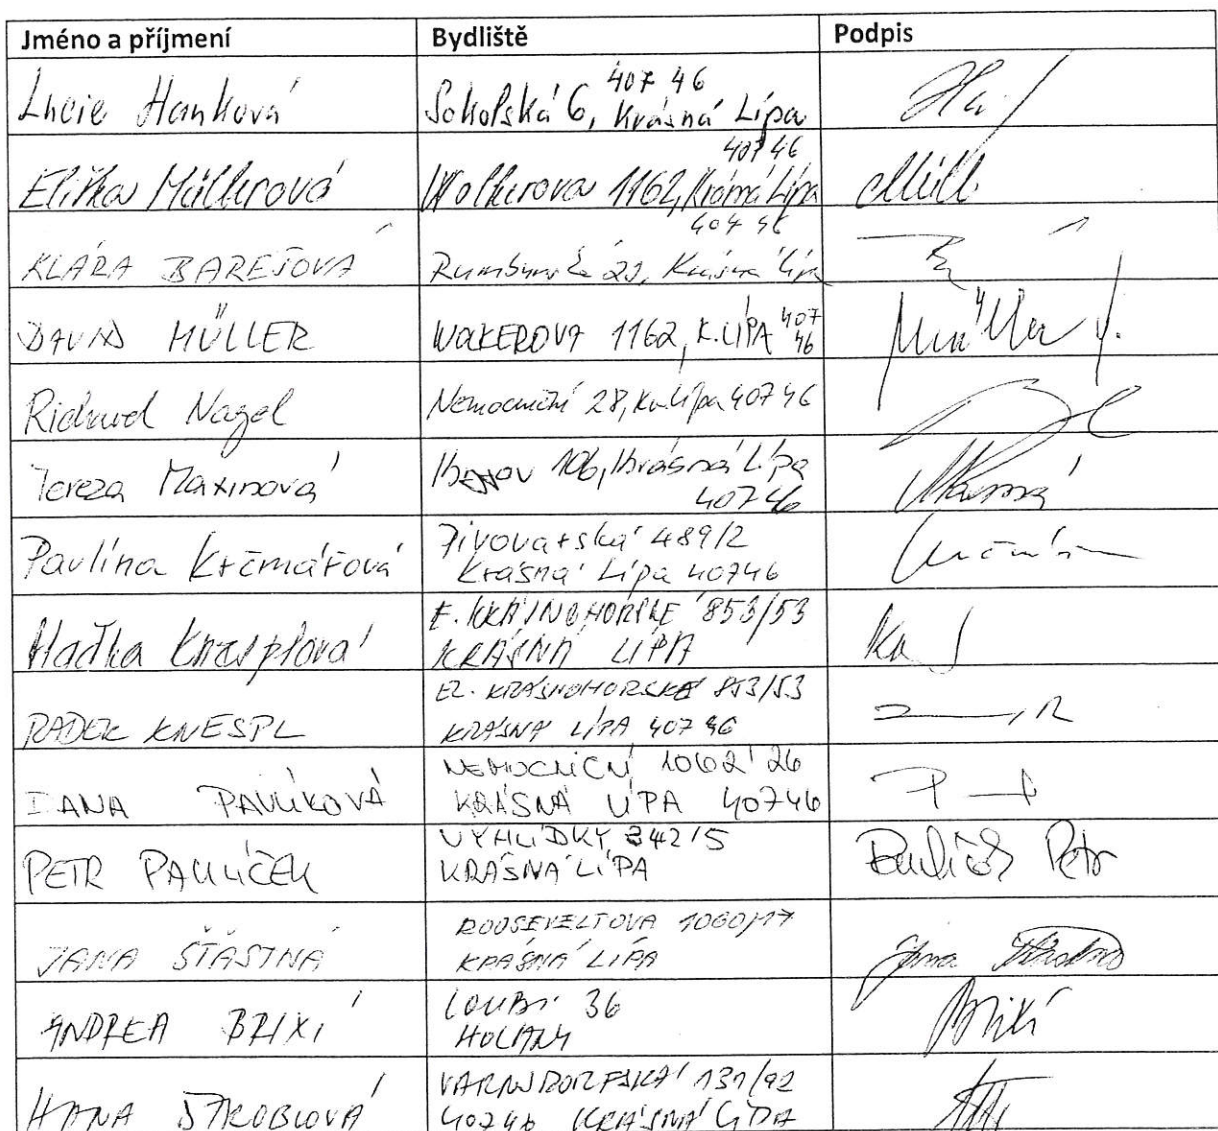 Jméno a příjmení Bydliště Podpis
Lucie Hanková Sokolská 6, 407 46 Krásná Lípa
Eliška Müllerová Wolkerova 1162, Krásná Lípa 407 46
KLÁRA BAREŠOVÁ 22, Krásná Lípa 407 46
DAVID MÜLLER WOLKEROVA 1162, K. LÍPA 407 46 Müller
Richard Nagel Nemocniční 28, Kr. Lípa 407 46
Tereza Maxinová 106, Krásná Lípa
40746
Pavlína Krčmářová Pivovarská 489/2
Krásná Lípa 40746
Knesplová E. KRÁSNOHORSKÉ 853/53
KRÁSNÁ LÍPA
RADEK KNESPL EL. KRÁSNOHORSKÉ 853/53
KRÁSNÁ LÍPA 407 46
DANA PAVLÍKOVÁ NEMOCNIČNÍ 1062/26
KRÁSNÁ LÍPA 40746
PETR PAVLÍČEK VYHLÍDKY 342/5 Pavlíček Petr
KRÁSNÁ LÍPA
JANA ŠŤASTNÁ ROOSEVELTOVA 1060/17 Jana Šťastná
KRÁSNÁ LÍPA
ANDREA BRIXÍ 36 Brixí
HANA ŠTROBLOVÁ VARNSDORFSKÁ 131/92
40746 KRÁSNÁ LÍPA